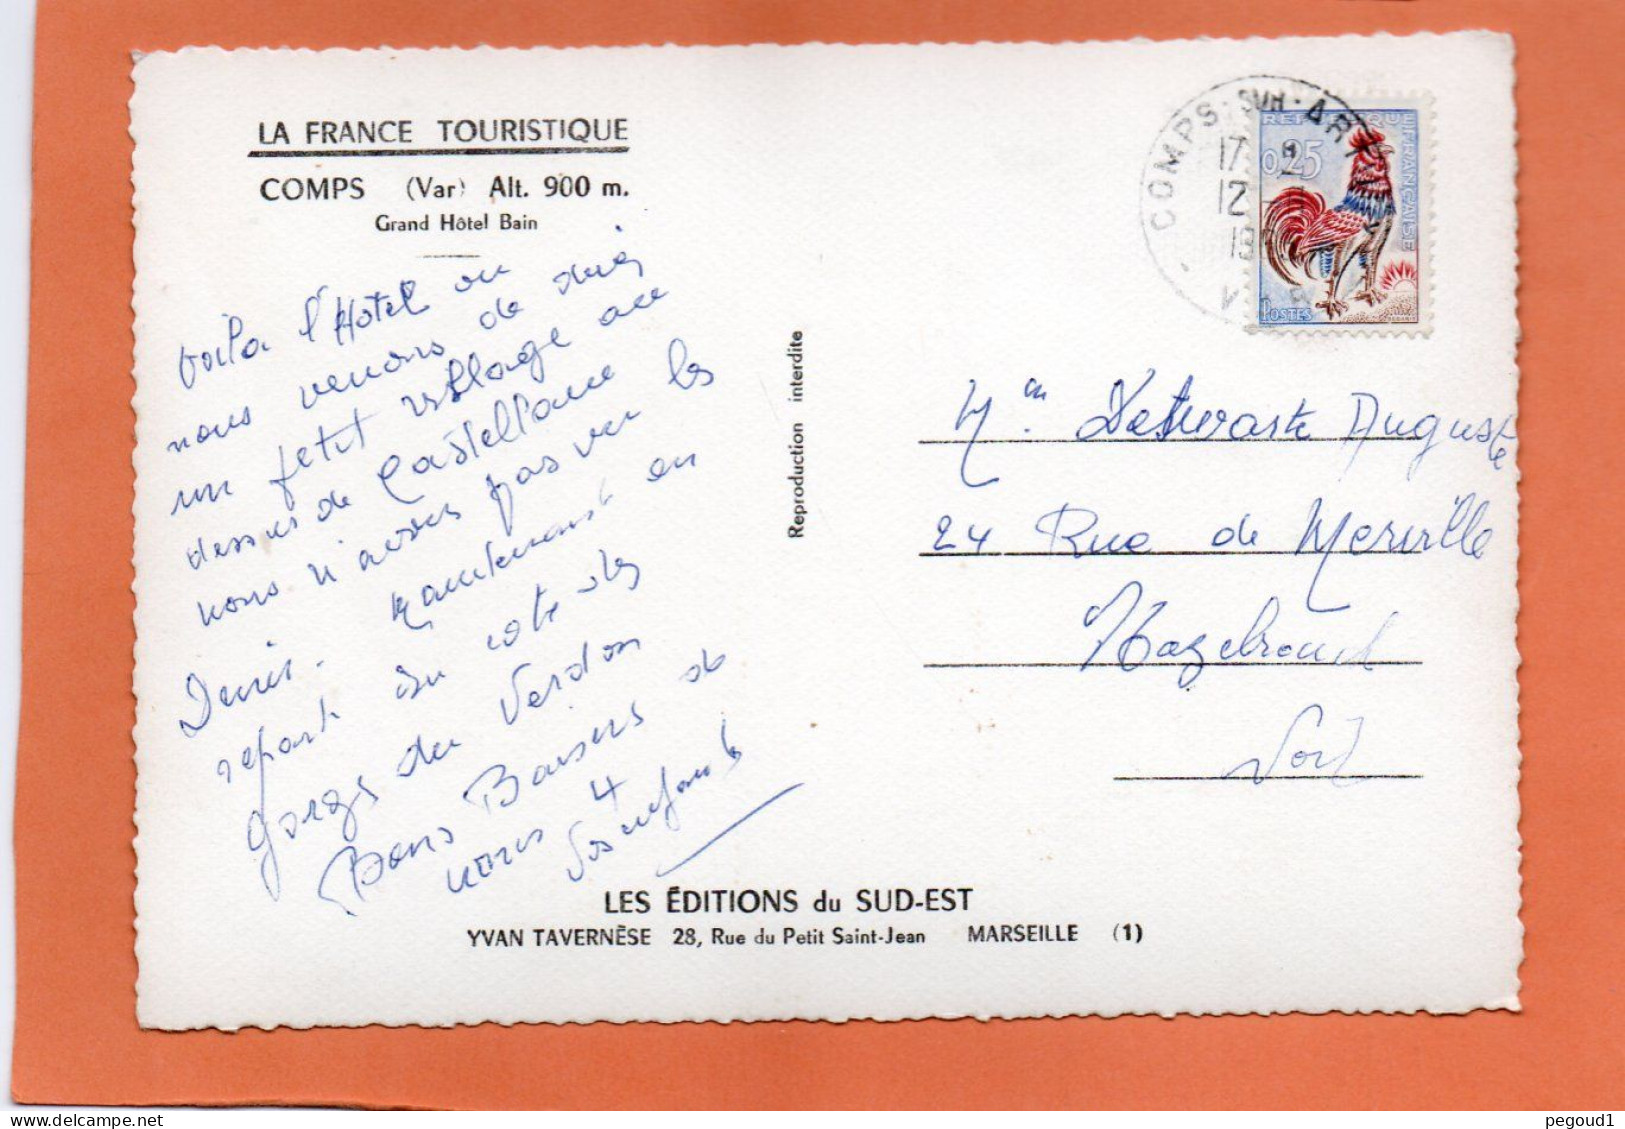 LA FRANCE TOURISTIQUE
COMPS (Var) Alt. 900 m.
Grand Hôtel Bain
Voila l'Hotel ou
nous venons de
un petit village au
dessus de Castellane
nous n'avons pas vu les
Denis. Maintenant on
repart du coté des
Gorges du Verdon
Bons Baisers de
nous 4
Vos enfants
Reproduction interdite
COMPS-SUR-ART
17 H
12
19
V R
REPUBLIQUE FRANÇAISE
0,25
POSTES
Mr. Auguste
24 Rue de Merville
Hazebrouck
Nord
LES ÉDITIONS du SUD-EST
YVAN TAVERNÈSE 28, Rue du Petit Saint-Jean MARSEILLE (1)
pegoud1